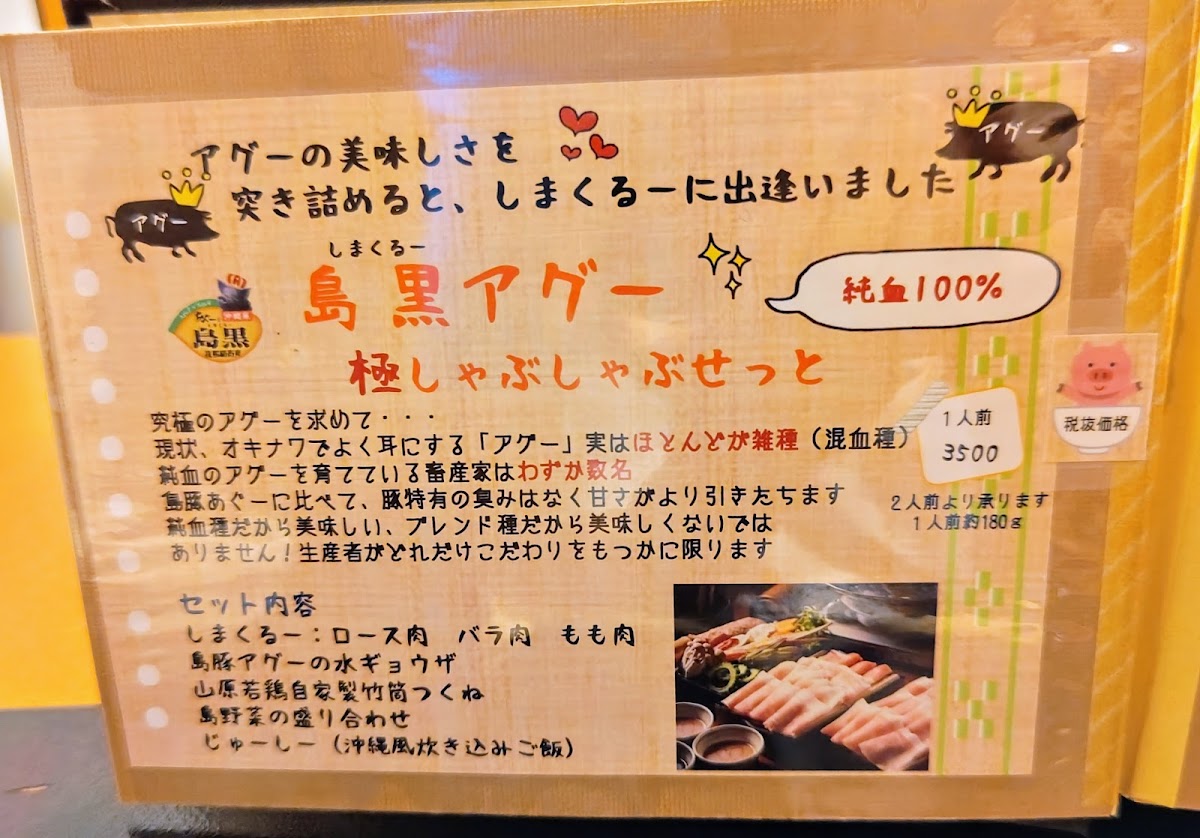 アグーの美味しさを
突き詰めると、しまくるーに出逢いました
アグー
アグー
しまくるー
島黒アグー
純血100%
島黒
極しゃぶしゃぶせっと
究極のアグーを求めて・・・
現状、オキナワでよく耳にする「アグー」実はほとんどが雑種（混血種）
純血のアグーを育てている畜産家はわずか数名
島豚あぐーに比べて、豚特有の臭みはなく甘さがより引きたちます
純血種だから美味しい、ブレンド種だから美味しくないでは
ありません！生産者がどれだけこだわりをもつかに限ります
1人前
3500
税抜価格
2人前より承ります
1人前約180g
セット内容
しまくるー：ロース肉　バラ肉　もも肉
島豚アグーの水ギョウザ
山原若鶏自家製竹筒つくね
島野菜の盛り合わせ
じゅーしー（沖縄風炊き込みご飯）